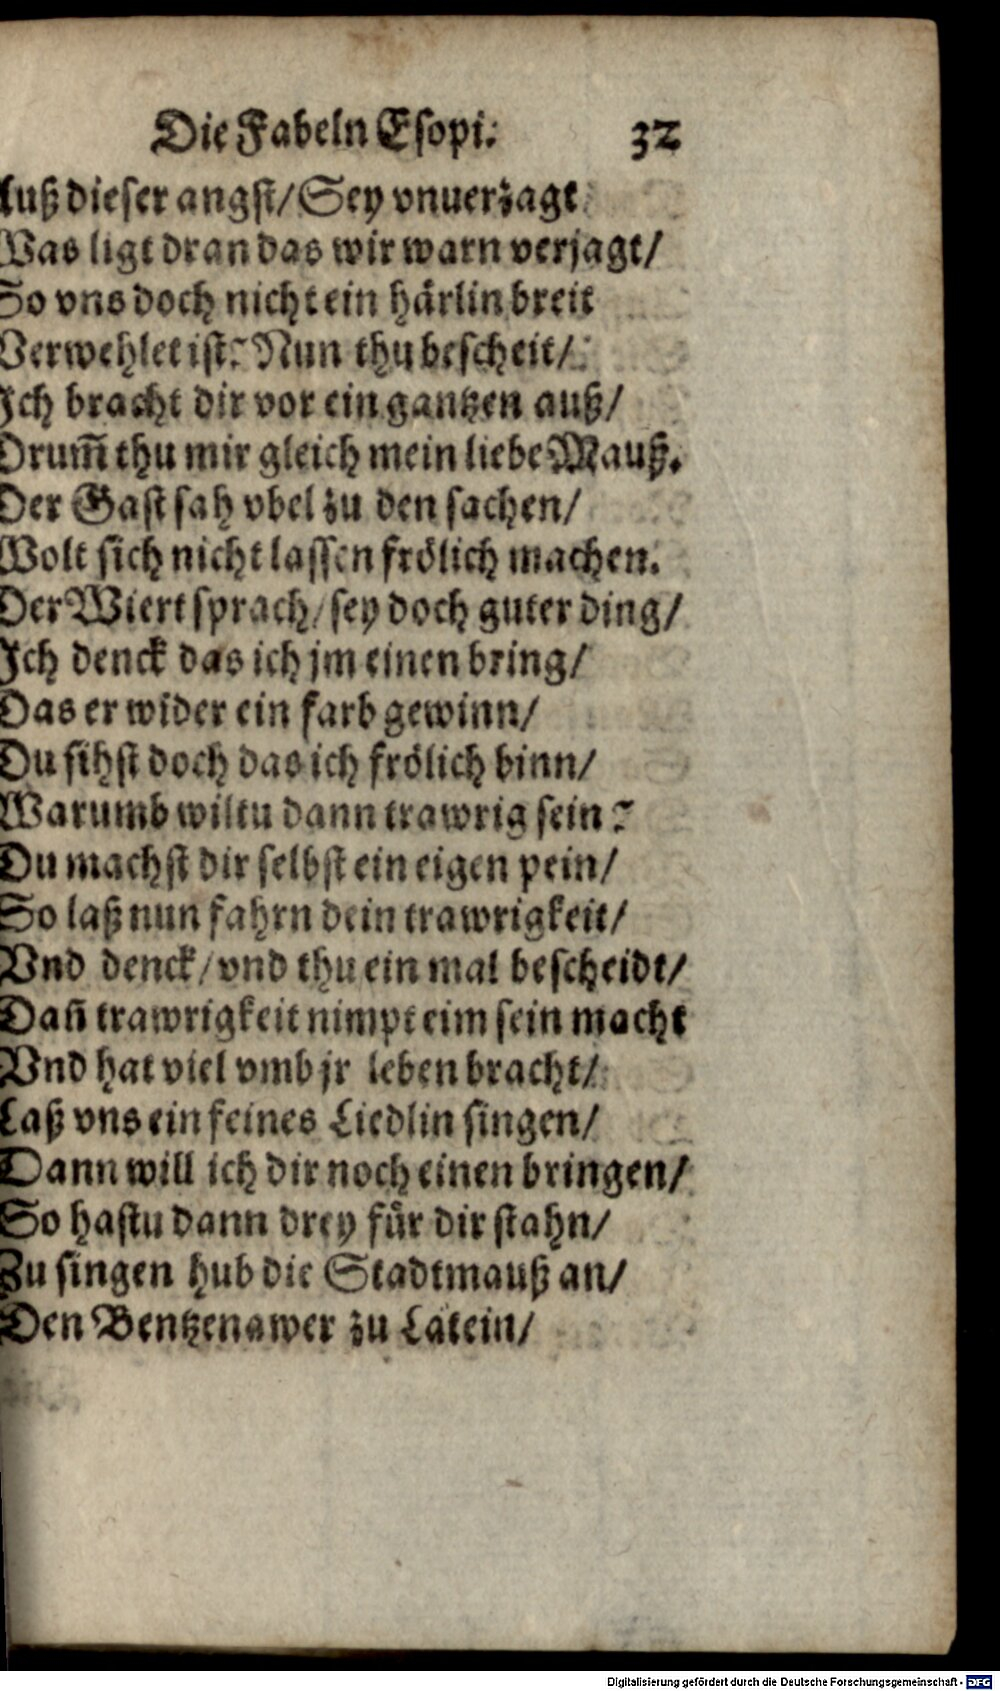 Die Fabeln Esopi. 32
Auß dieser angst/ Sey vnuerzagt
Was ligt dran das wir warn verjagt/
So vns doch nicht ein härlin breit
Verwehlet ist? Nun thu bescheit/
Ich bracht dir vor ein gantzen auß/
Drum̃ thu mir gleich mein liebe Mauß.
Der Gast sah vbel zu den sachen/
Wolt sich nicht lassen frölich machen.
Der Wiert sprach/ sey doch guter ding/
Ich denck das ich jm einen bring/
Das er wider ein farb gewinn/
Du sihst doch das ich frölich binn/
Warumb wiltu dann trawrig sein?
Du machst dir selbst ein eigen pein/
So laß nun fahrn dein trawrigkeit/
Vnd denck/ vnd thu ein mal bescheidt/
Dañ trawrigkeit nimpt eim sein macht
Vnd hat viel vmb jr leben bracht/
Laß vns ein feines Liedlin singen/
Dann will ich dir noch einen bringen/
So hastu dann drey für dir stahn/
Zu singen hub die Stadtmauß an/
Den Bentzenawer zu Latein/
Digitalisierung gefördert durch die Deutsche Forschungsgemeinschaft - DFG